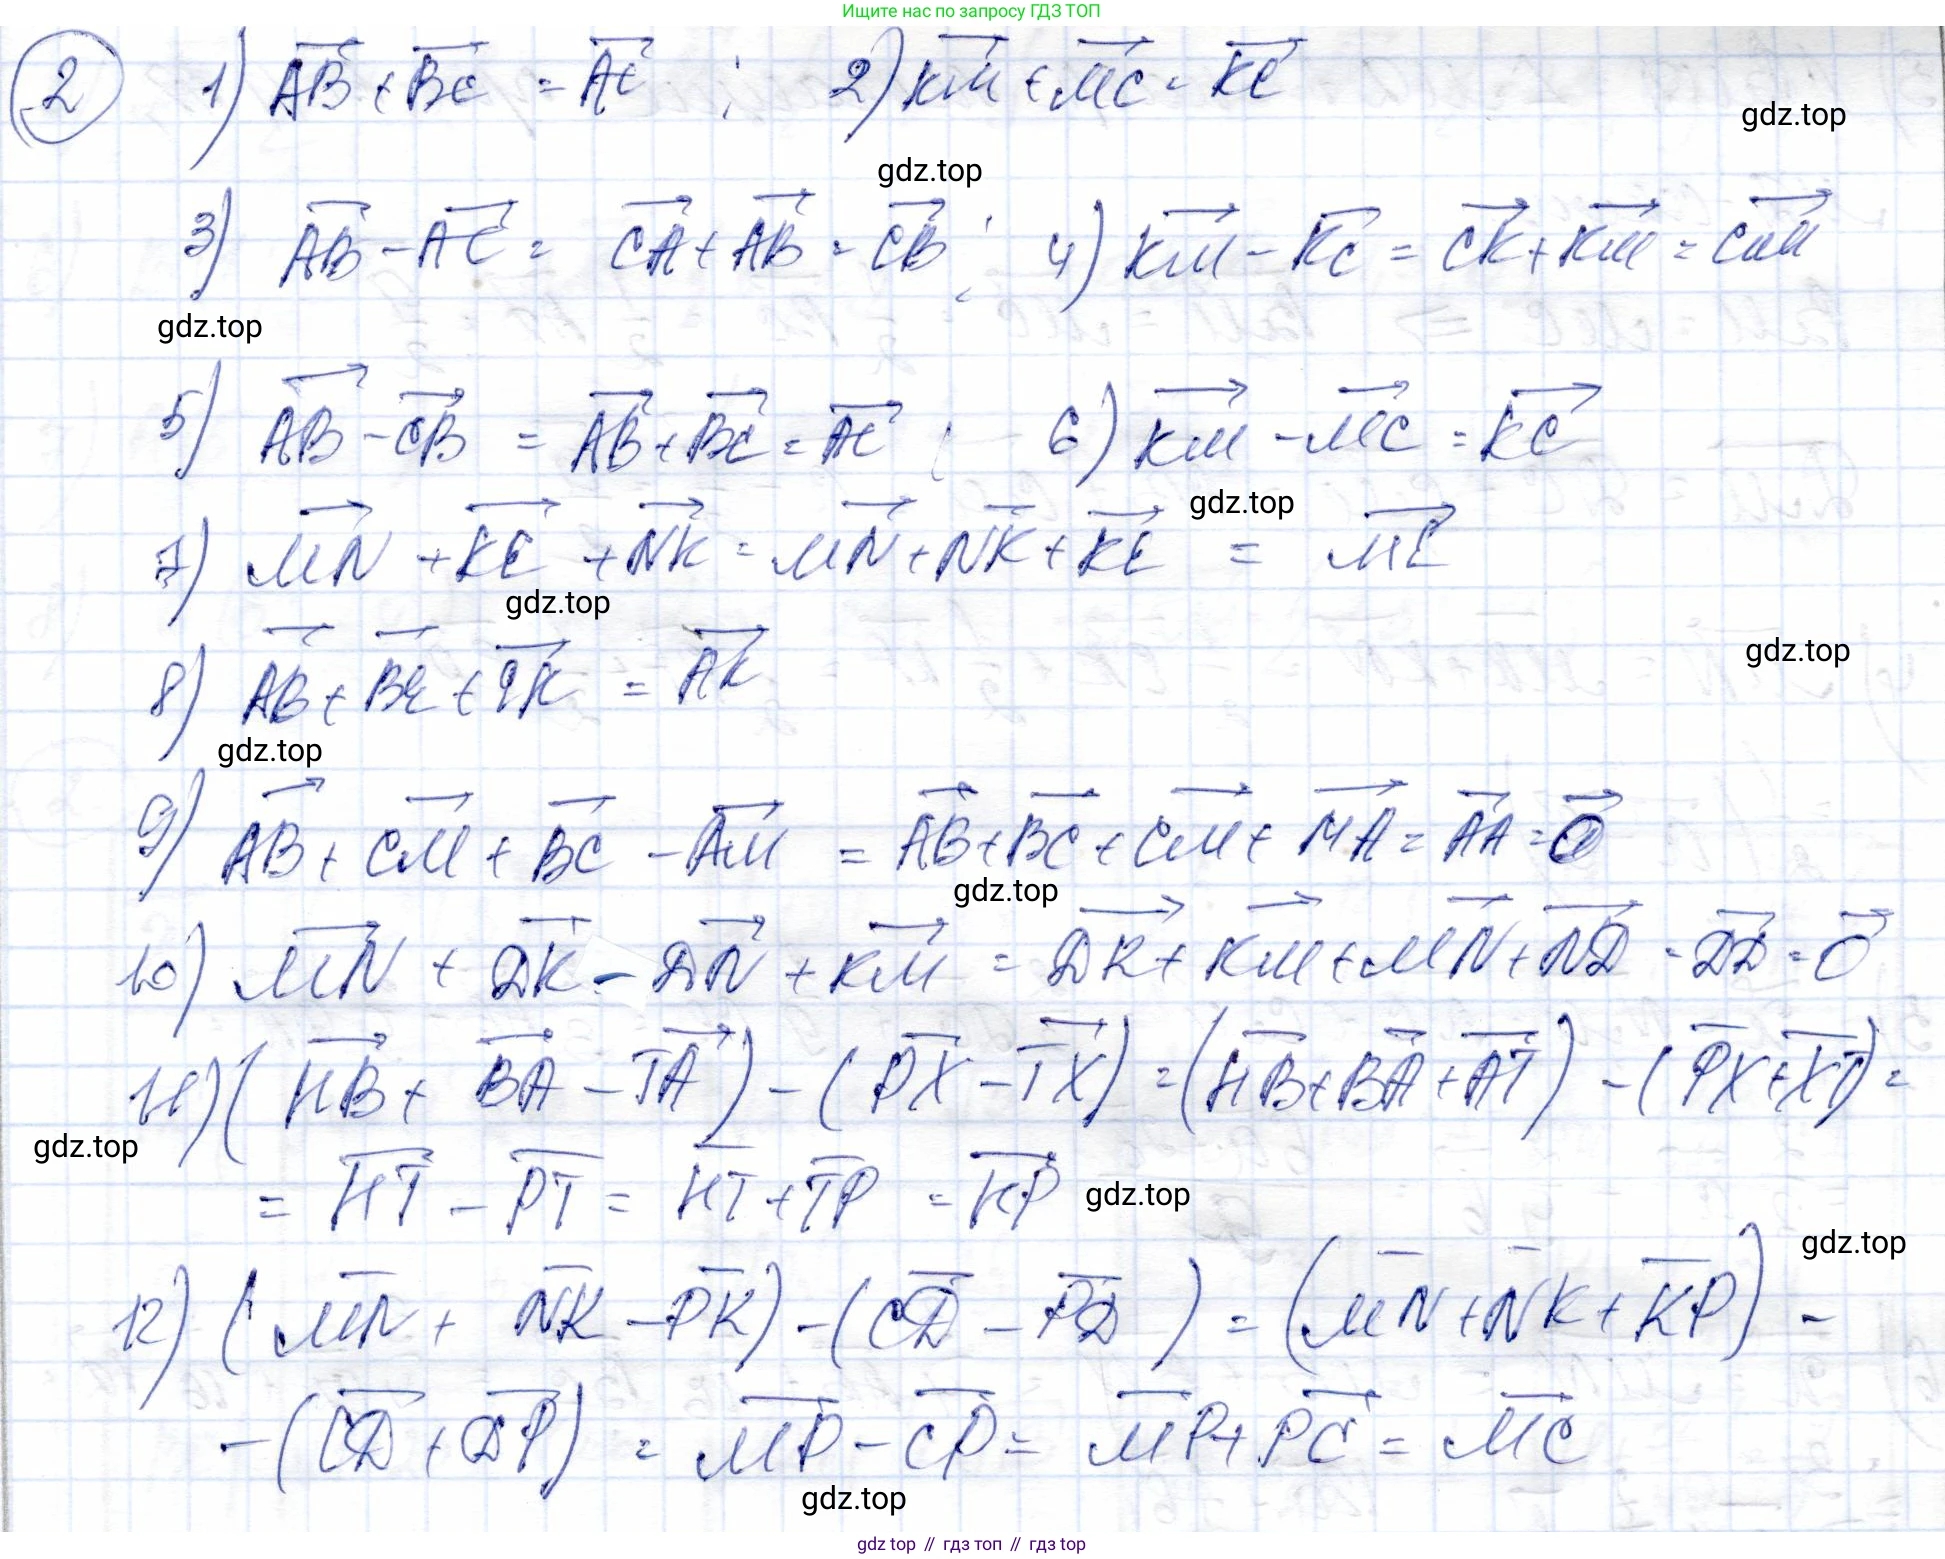 Ищите нас по запросу ГДЗ ТОП
2 1) AB + BC = AC ; 2) KM + MC = KC
gdz.top
gdz.top
3) AB - AC = CA + AB = CB ; 4) KM - KC = CK + KM = CM
gdz.top
5) AB - CB = AB + BC = AC ; 6) KM - MC = KC
gdz.top
7) MN + KE + NK = MN + NK + KE = ME
gdz.top
gdz.top
8) AB + BE + EK = AK
gdz.top
9) AB + CM + BC - AM = AB + BC + CM + MA = AA = 0
gdz.top
10) MN + DK - DN + KM = DK + KM + MN + ND = DD = 0
11) (HB + BA - TA) - (PX - TX) = (HB + BA + AT) - (PX + XT) =
gdz.top
= HT - PT = HT + TP = KP gdz.top
gdz.top
12) (MN + NK - PK) - (CD - PD) = (MN + NK + KP) -
- (CD + DP) = MP - CP = MP + PC = MC
gdz.top
gdz top // гдз топ // гдз top